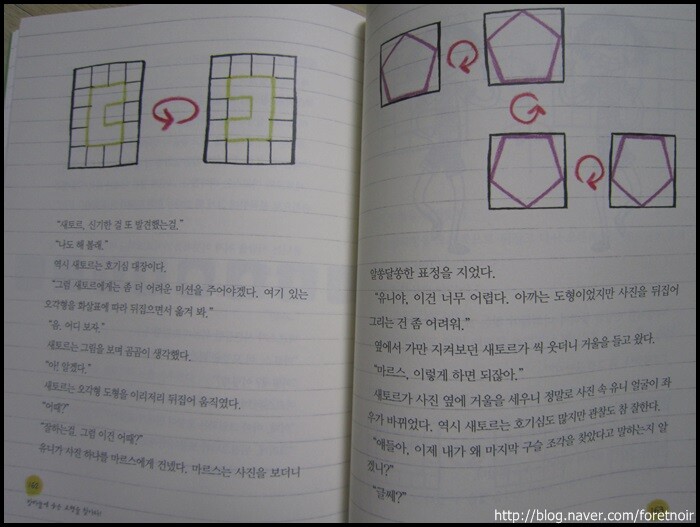 "새토르, 신기한 걸 또 발견했는걸."
"나도 해 볼래."
역시 새토르는 호기심 대장이다.
"그럼 새토르에게는 좀 더 어려운 미션을 주어야겠다. 여기 있는
오각형을 화살표에 따라 뒤집으면서 옮겨 봐."
"음, 어디 보자."
새토르는 그림을 보며 곰곰이 생각했다.
"아! 알겠다."
새토르는 오각형 도형을 이리저리 뒤집어 움직였다.
"어때?"
"잘하는걸. 그럼 이건 어때?"
유니가 사진 하나를 마르스에게 건넸다. 마르스는 사진을 보더니
알쏭달쏭한 표정을 지었다.
"유니야, 이건 너무 어렵다. 아까는 도형이었지만 사진을 뒤집어
그리는 건 좀 어려워."
옆에서 가만 지켜보던 새토르가 씩 웃더니 거울을 들고 왔다.
"마르스, 이렇게 하면 되잖아."
새토르가 사진 옆에 거울을 세우니 정말로 사진 속 유니 얼굴이 좌
우가 바뀌었다. 역시 새토르는 호기심도 많지만 관찰도 참 잘한다.
"얘들아, 이제 내가 왜 마지막 구슬 조각을 찾았다고 말하는지 알
겠니?"
"글쎄?"
http://blog.naver.com/foretnoir